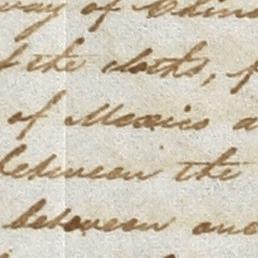 way of China
the cloths,
of Mexico a
between the
between and